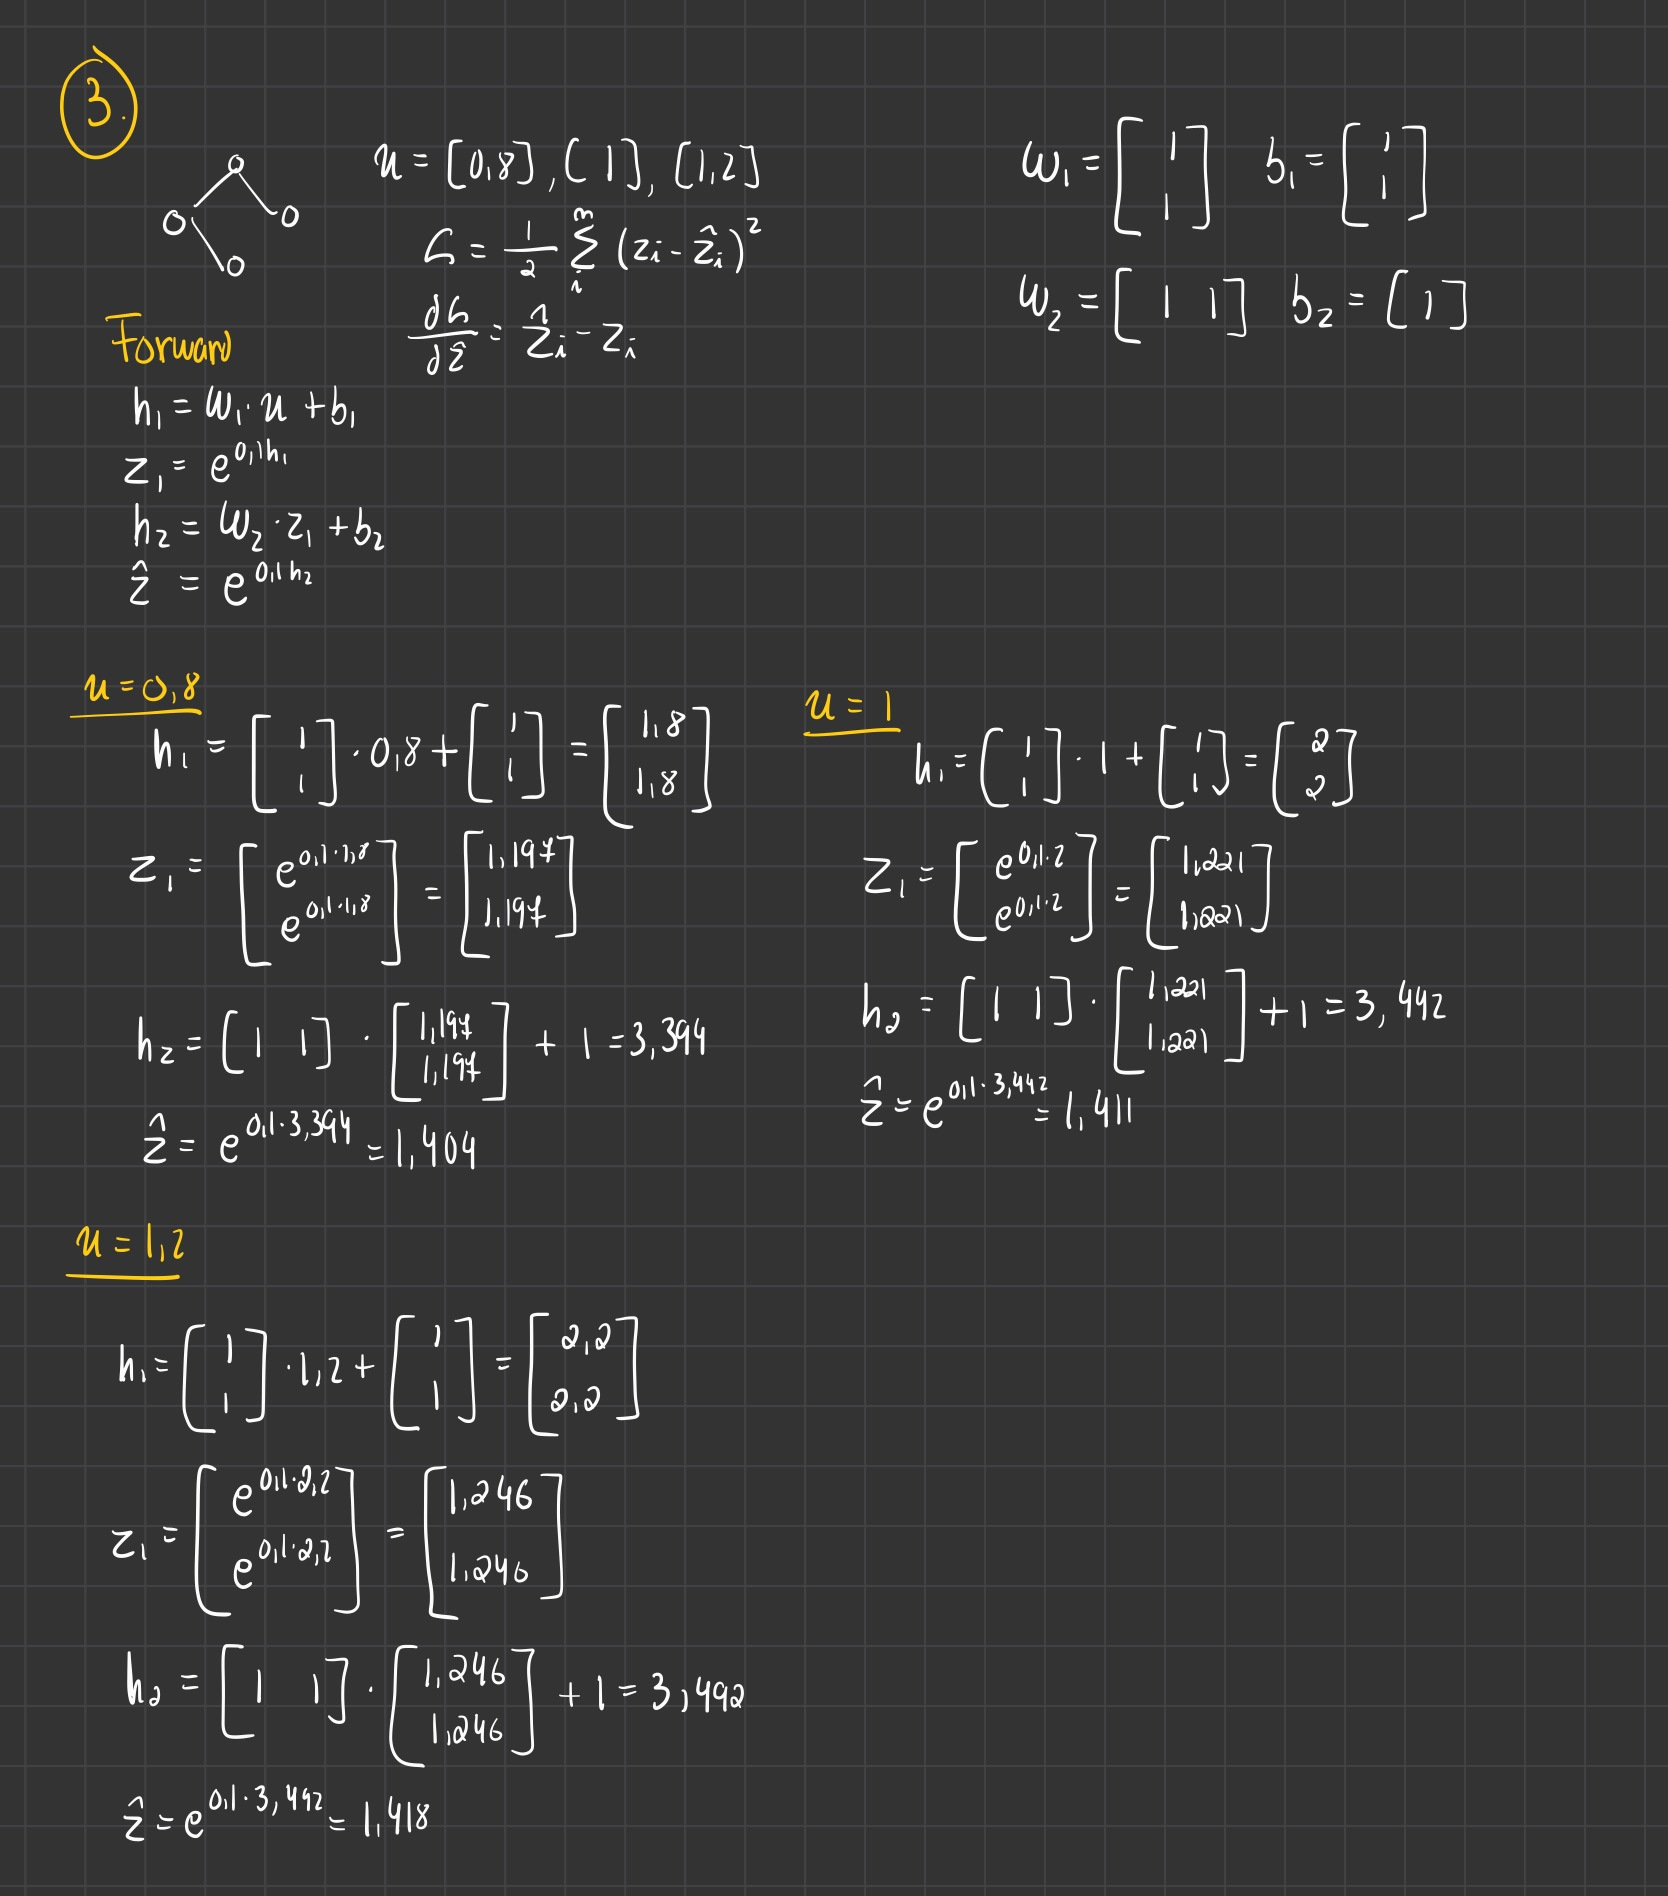 3.
u = [0,8], [1], [1,2]
W₁ = [1 1] b₁ = [1 1]
L = 1/2 Σᵢᵐ (zi - ẑi)²
W₂ = [1 1] b₂ = [1]
dL/dẑ = ẑi - zi
Forward
h₁ = W₁·u + b₁
z₁ = e^0,1h₁
h₂ = W₂·z₁ + b₂
ẑ = e^0,1h₂
u = 0,8
h₁ = [1 1]·0,8 + [1 1] = [1,8 1,8]
z₁ = [e^0,1·1,8 e^0,1·1,8] = [1,197 1,197]
h₂ = [1 1]·[1,197 1,197] + 1 = 3,394
ẑ = e^0,1·3,394 = 1,404
u = 1
h₁ = [1 1]·1 + [1 1] = [2 2]
z₁ = [e^0,1·2 e^0,1·2] = [1,221 1,221]
h₂ = [1 1]·[1,221 1,221] + 1 = 3,442
ẑ = e^0,1·3,442 = 1,411
u = 1,2
h₁ = [1 1]·1,2 + [1 1] = [2,2 2,2]
z₁ = [e^0,1·2,2 e^0,1·2,2] = [1,246 1,246]
h₂ = [1 1]·[1,246 1,246] + 1 = 3,492
ẑ = e^0,1·3,492 = 1,418